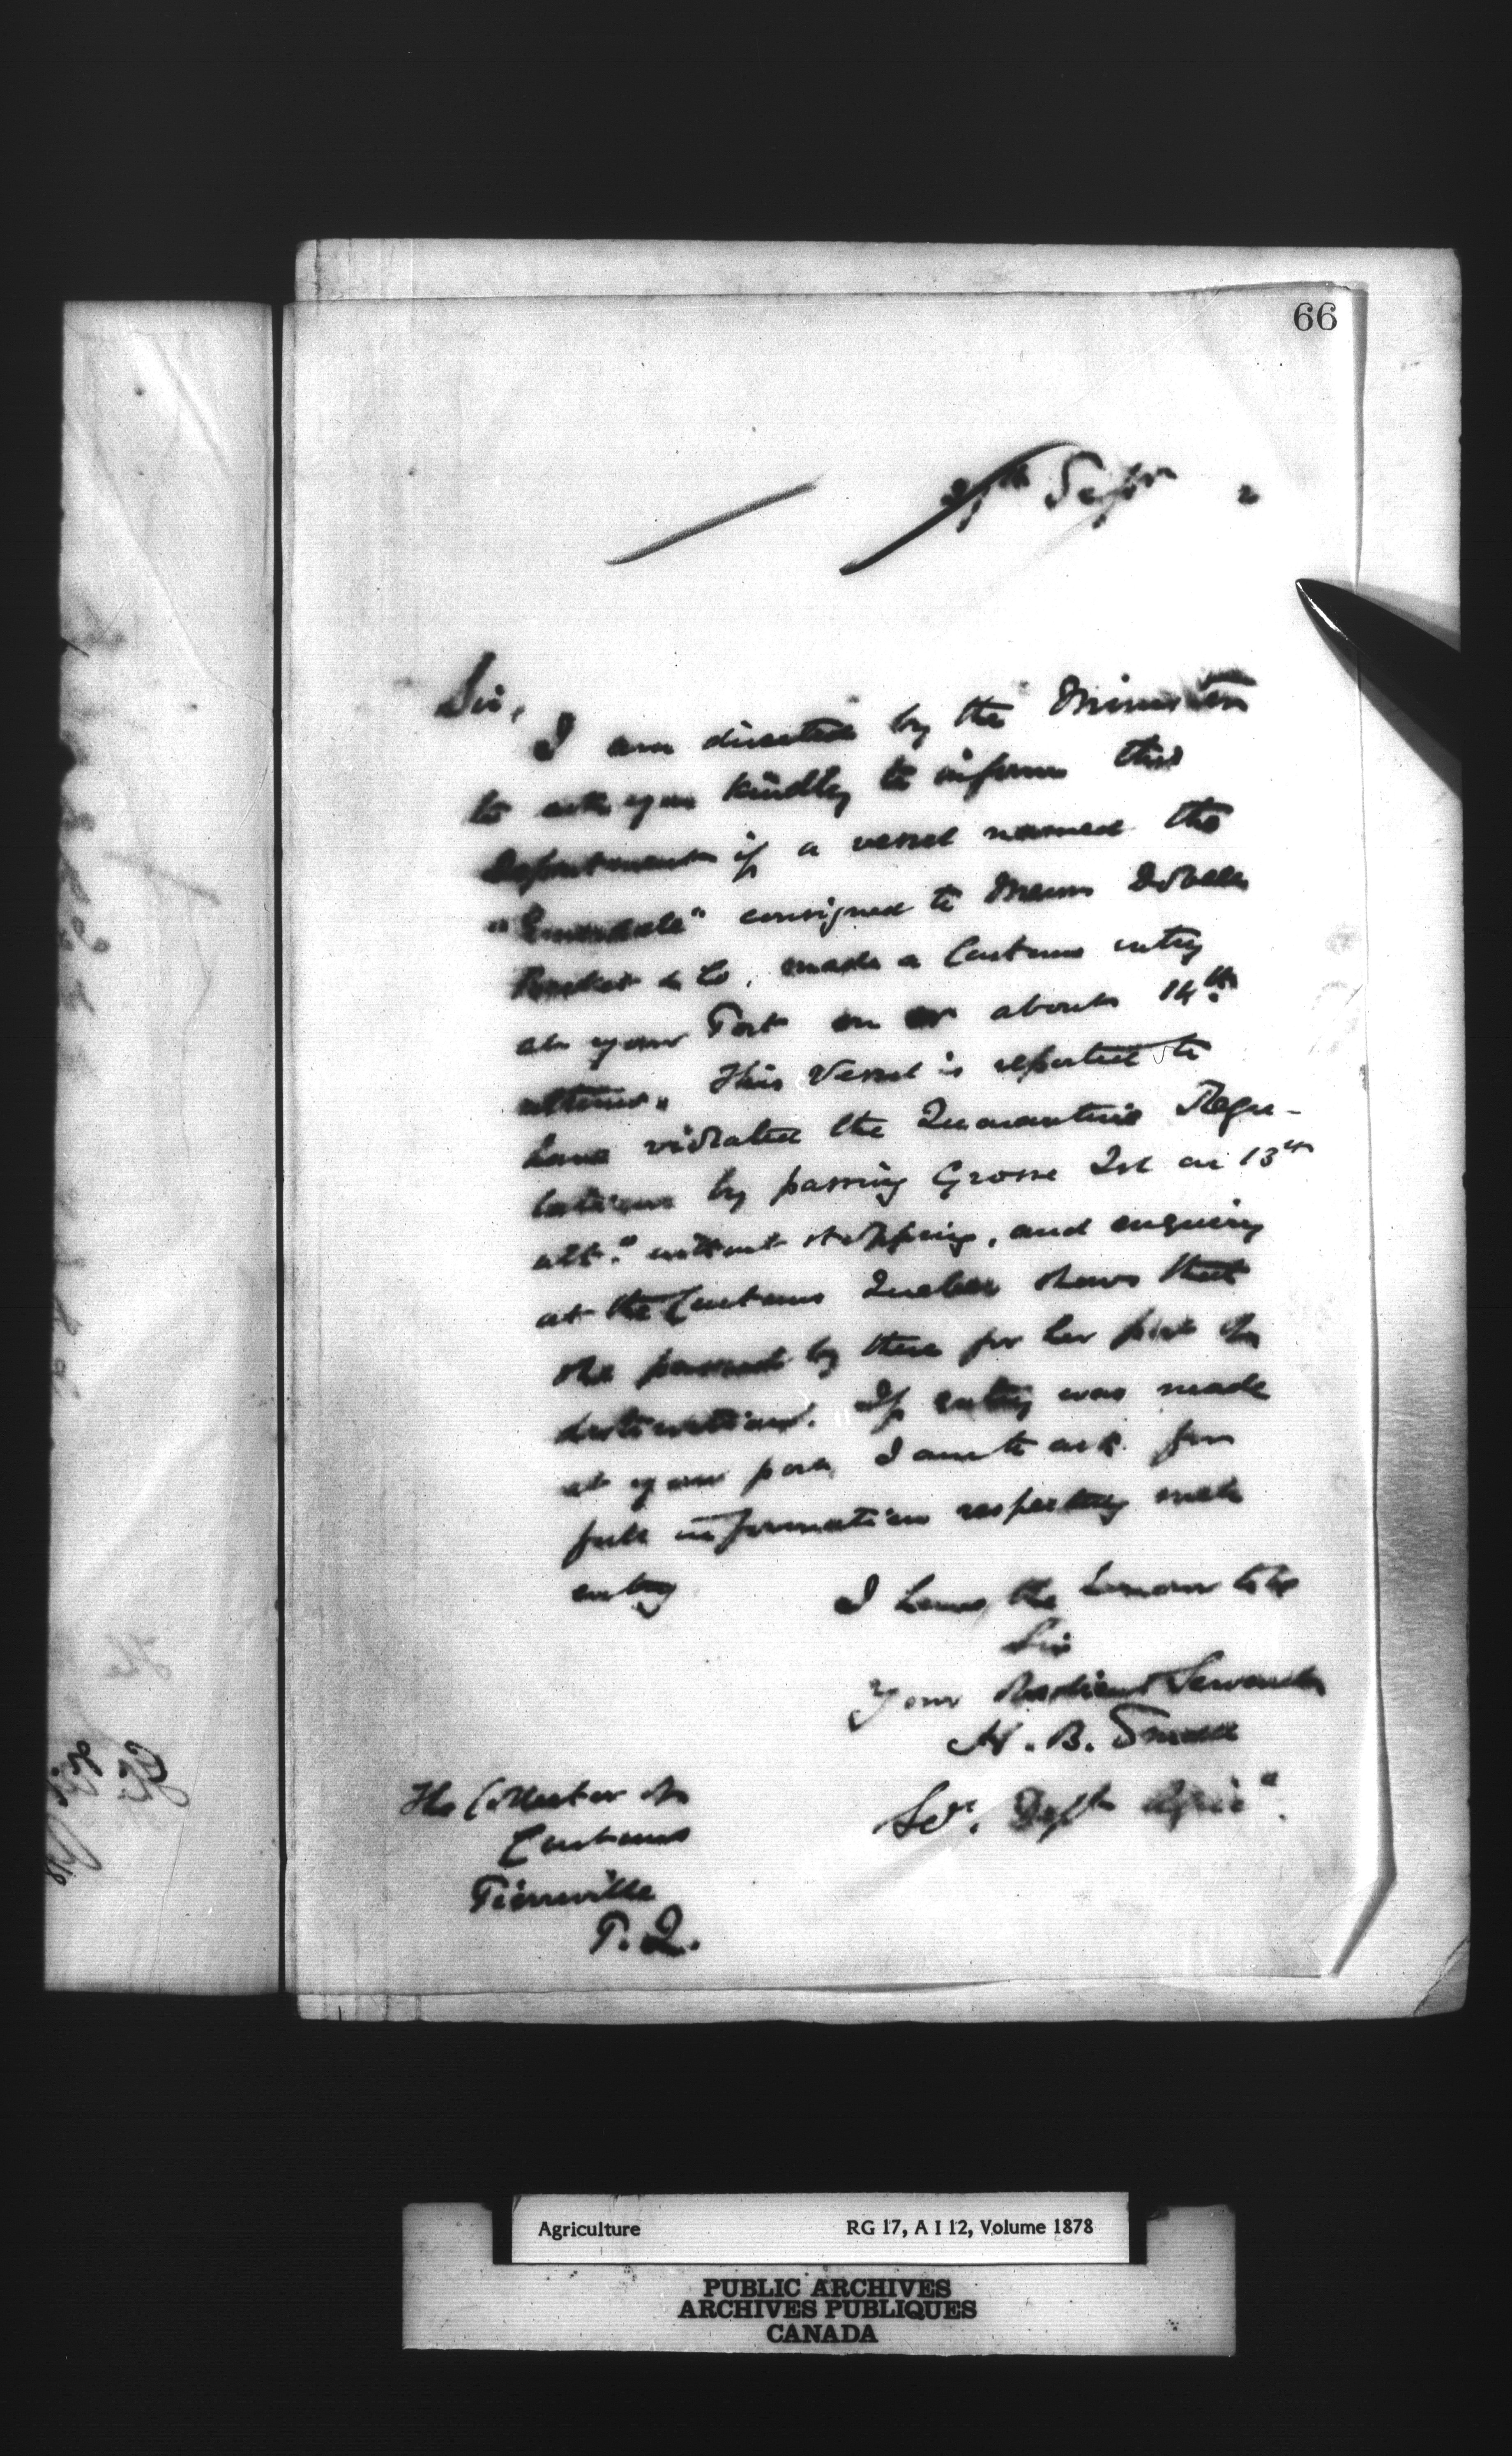 66
Septr 2
Sir,
I am directed by the Minister
to ask you kindly to inform this
Department if a vessel named the
" " consigned to Messrs Dobell
Beckett & Co, made a Customs entry
at your Port on or about 14th
ultimo. This Vessel is reported to
have violated the Quarantine Regu-
lations by passing Grosse Isl on 13th
ulto without stopping, and enquiry
at the Customs Quebec shows that
she passed by there for her port of
destination. If entry was made
at your port, I am to ask for
full information respecting such
entry
I have the honour to be
Sir
Your Obedient Servant
H. B. Small
Secy. Dept Agric
The Collector of
Customs
Pierreville
P.Q.
Agriculture RG 17, A I 12, Volume 1878
PUBLIC ARCHIVES
ARCHIVES PUBLIQUES
CANADA